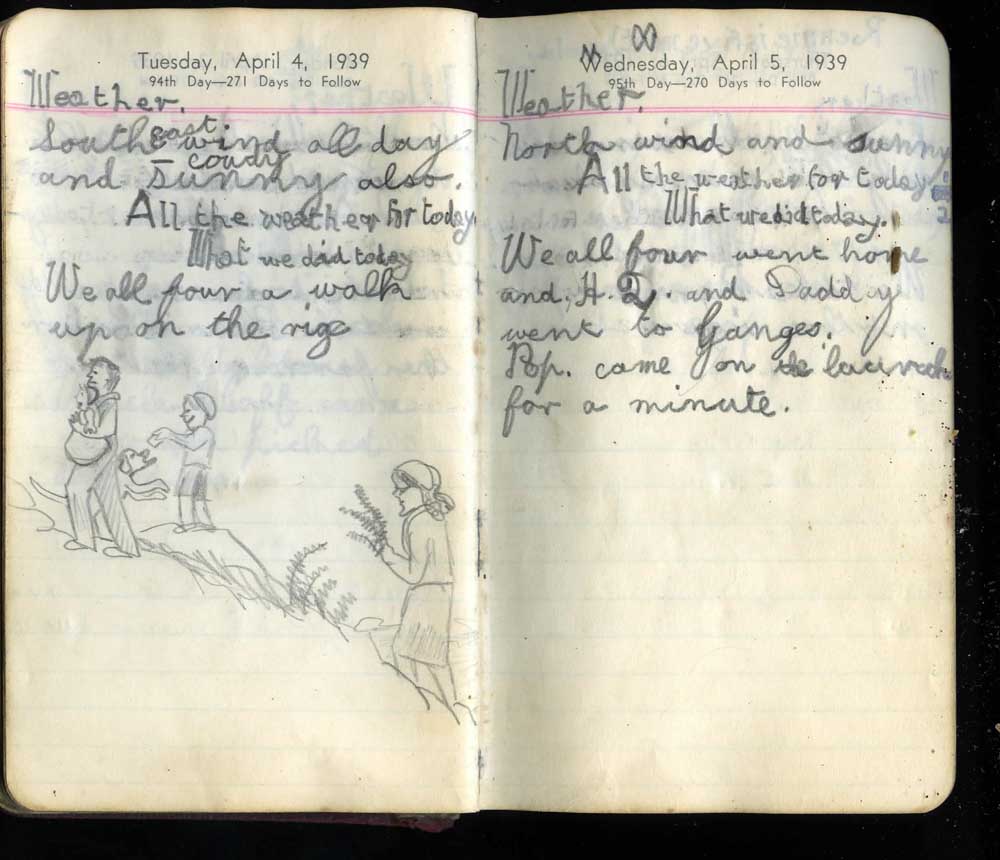 Tuesday, April 4, 1939
94th Day—271 Days to Follow
Weather.
South east wind all day
and coudy sunny also.
All the weather for today
What we did today
We all four a walk
up on the rige
Wednesday, April 5, 1939
95th Day—270 Days to Follow
Weather.
North wind and sunny
All the weather for today
What we did today.
We all four went home
and. H. D. and Daddy
went to Ganges.
Pop. came on the
for a minute.